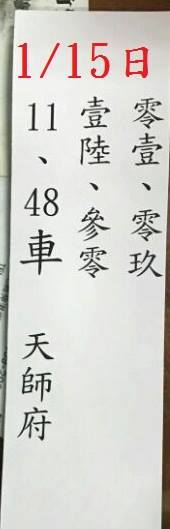 1/15日
零壹、零玖
壹陸、參零
11、48車 天師府